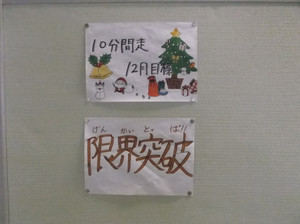 10分間走
12月目標
げん かい とっ ぱ!!
限界突破